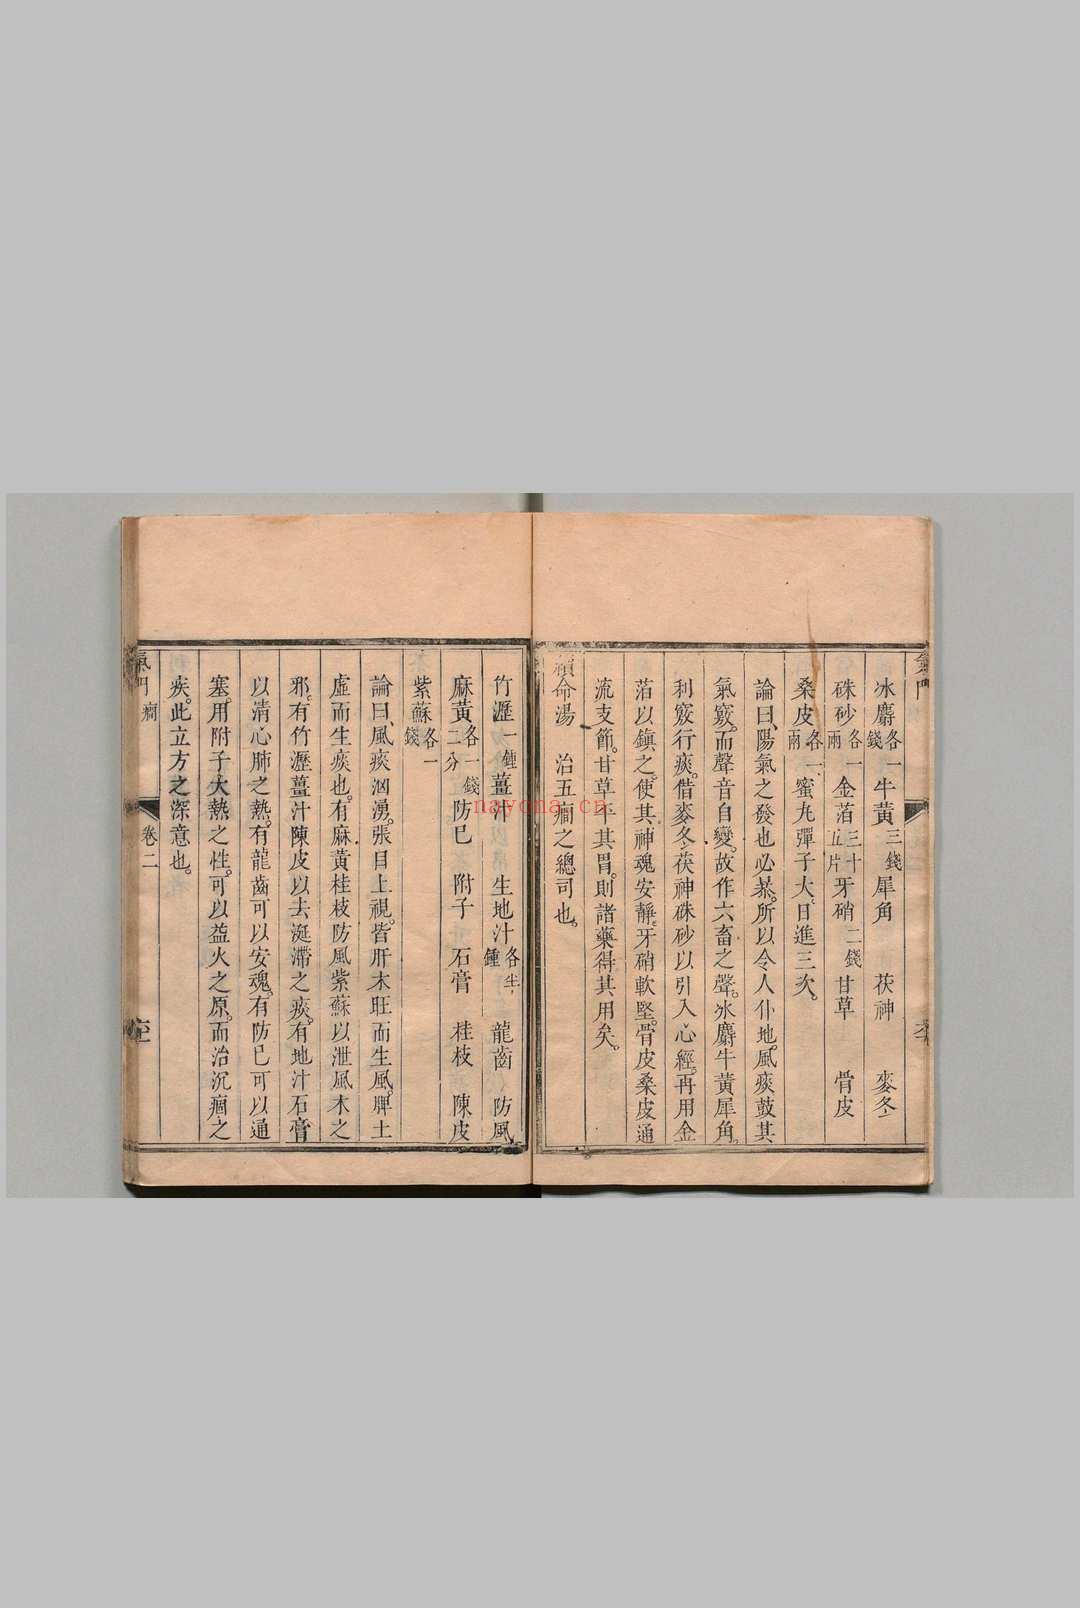 冰麝各一錢牛黃三錢犀角 茯神 麥冬
硃砂各一兩金箔三十五片牙硝二錢甘草 骨皮
桑皮各一兩蜜丸彈子大日進三次。
論曰、陽氣之發也必暴。所以令人仆地。風痰鼓其
氣竅。而聲音自變。故作六畜之聲。冰麝牛黃犀角。
利竅行痰。借麥冬茯神硃砂以引入心經。再用金
箔以鎮之。使其神魂安靜。牙硝軟堅。骨皮桑皮通
流支節。甘草平其胃。則諸藥得其用矣。
續命湯 治五癎之總司也。
竹瀝一鍾薑汁 生地汁各半鍾 龍齒 防風
麻黃各一錢二分防巳 附子 石膏 桂枝 陳皮
紫蘇各一錢
論曰、風痰洶湧。張目上視。皆肝木旺而生風。脾土
虛而生痰也。有麻黃桂枝防風紫蘇以泄風木之
邪。有竹瀝薑汁陳皮以去涎滯之痰。有地汁石膏
以清心肺之熱。有龍齒可以安魂。有防巳可以通
塞。用附子大熱之性。可以益火之原。而治沉痼之
疾。此立方之深意也。
氣門 癎
卷二
nayona.cn